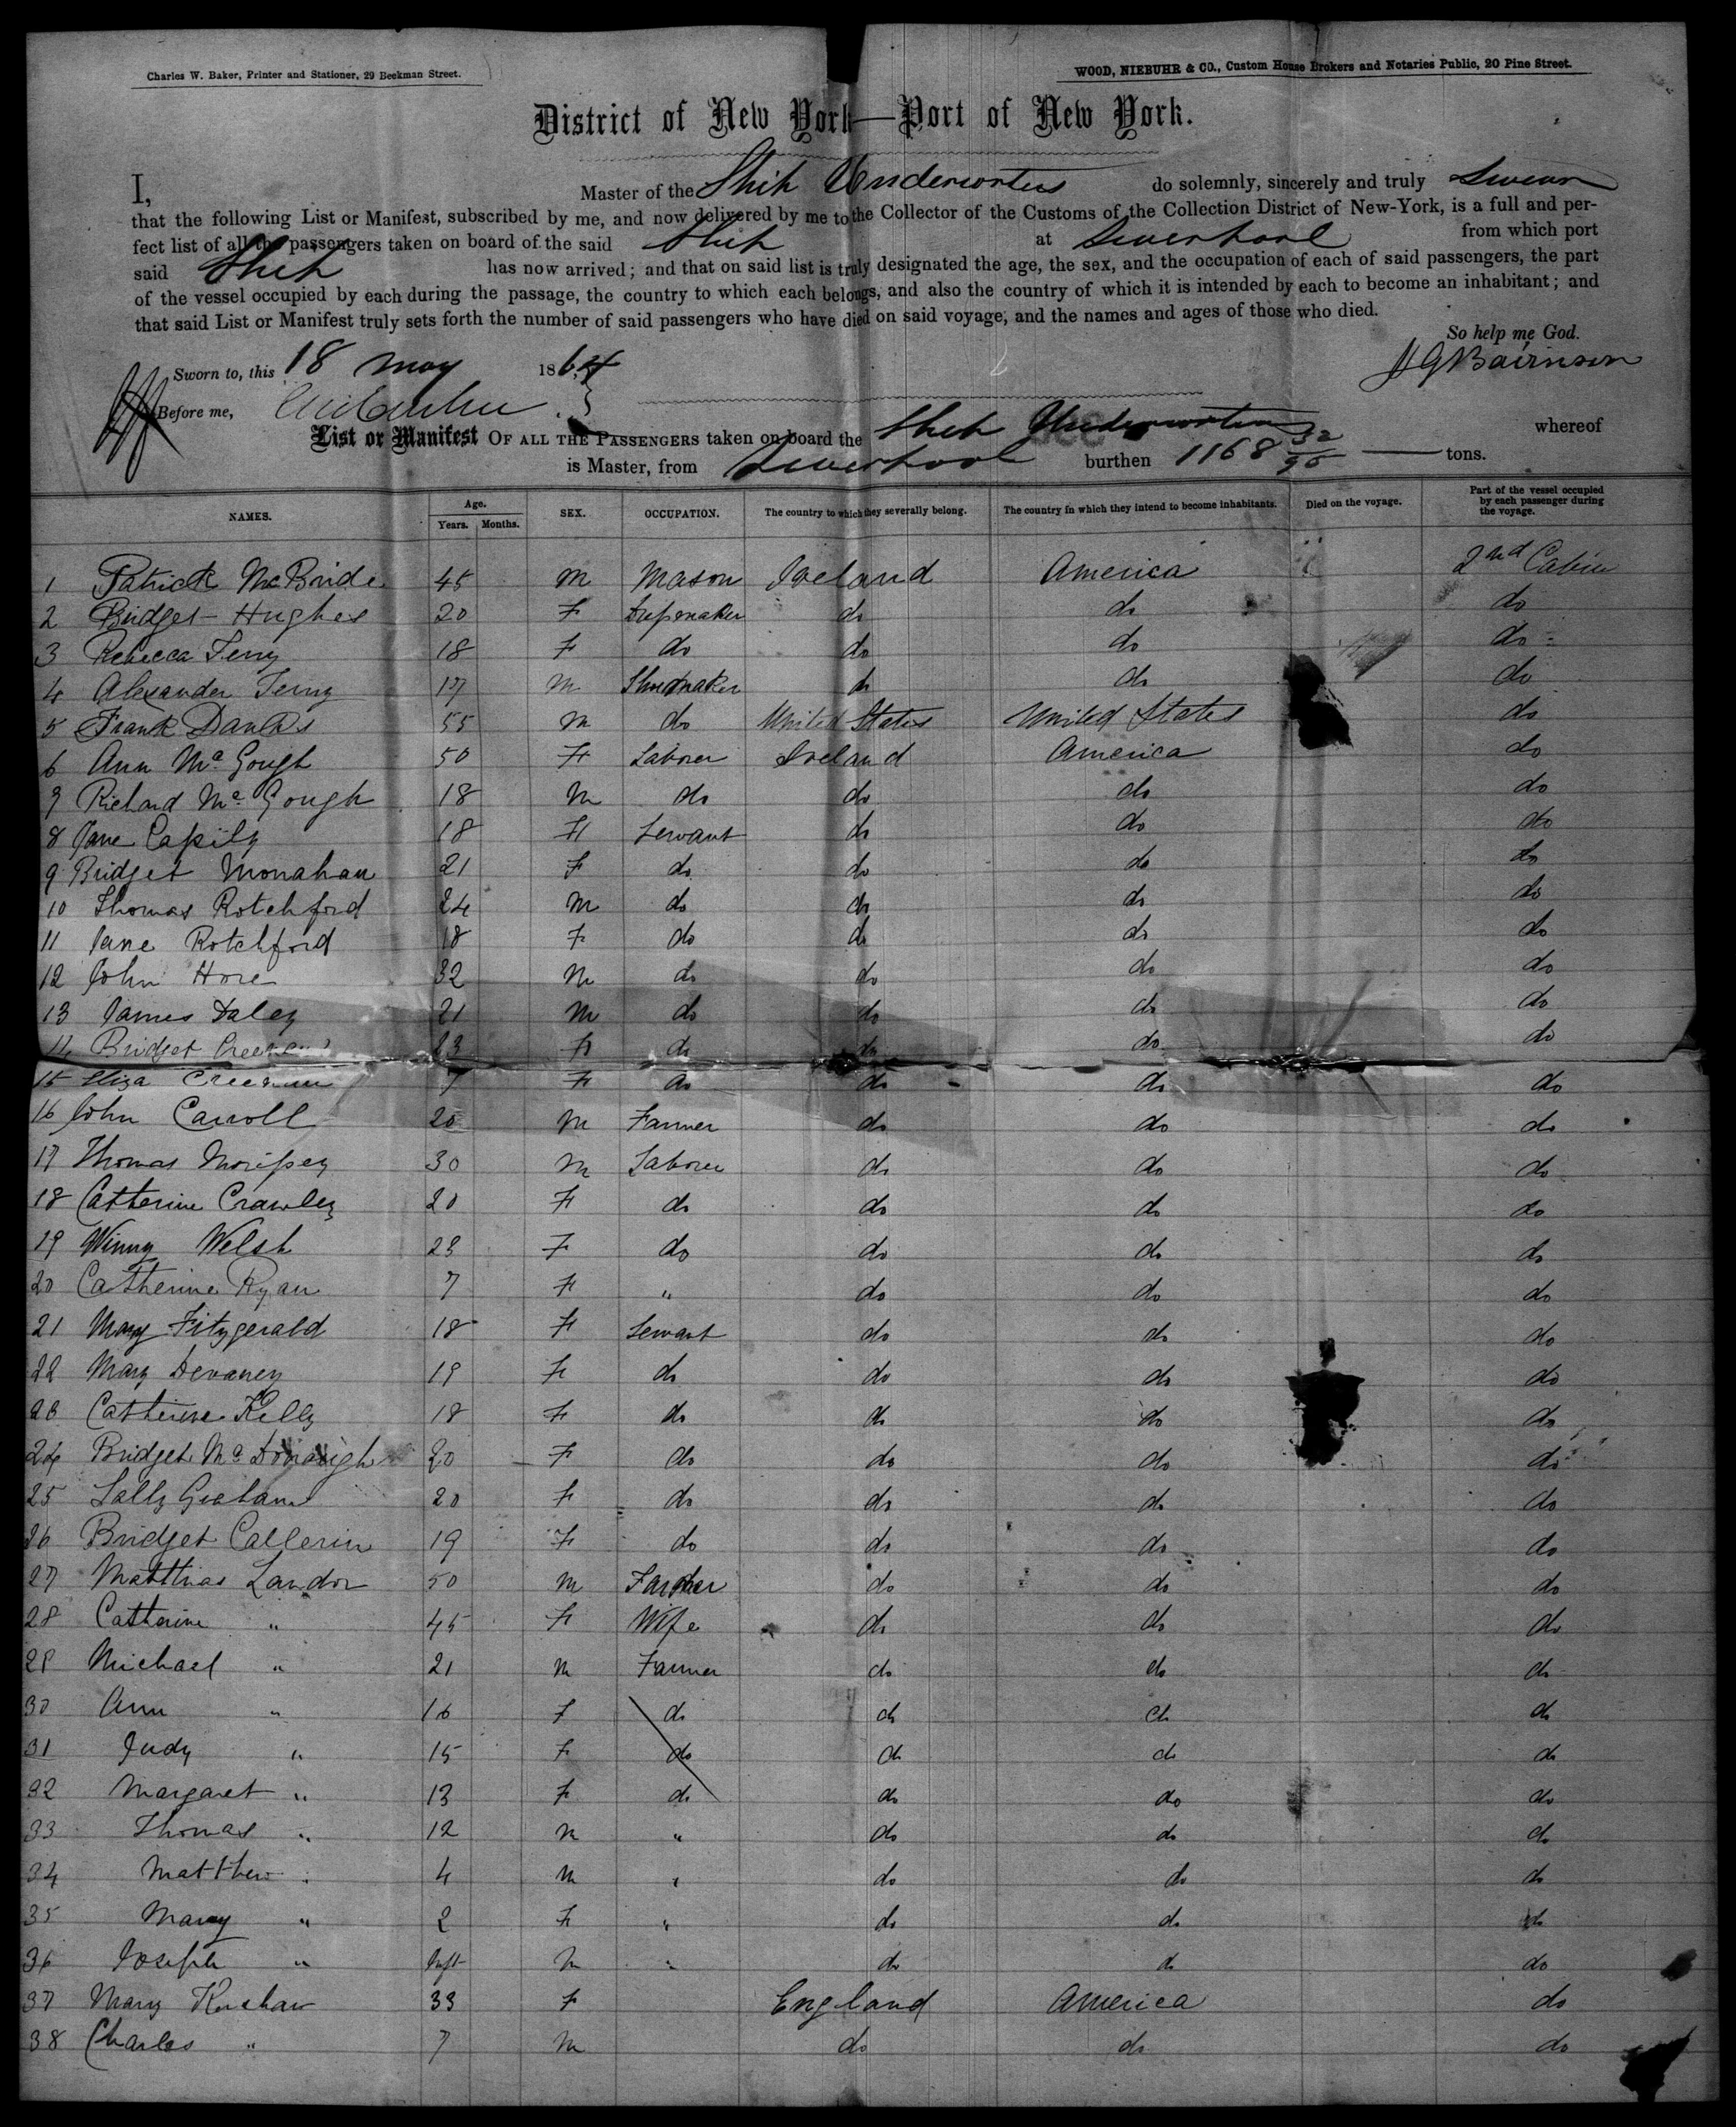 Charles W. Baker, Printer and Stationer, 29 Beekman Street.
WOOD, NIEBUHR & CO., Custom House Brokers and Notaries Public, 20 Pine Street.
District of New York—Port of New York.
I, Master of the Ship Underwriter do solemnly, sincerely and truly Swear
that the following List or Manifest, subscribed by me, and now delivered by me to the Collector of the Customs of the Collection District of New-York, is a full and per-
fect list of all the passengers taken on board of the said Ship at Liverpool from which port
said Ship has now arrived; and that on said list is truly designated the age, the sex, and the occupation of each of said passengers, the part
of the vessel occupied by each during the passage, the country to which each belongs, and also the country of which it is intended by each to become an inhabitant; and
that said List or Manifest truly sets forth the number of said passengers who have died on said voyage, and the names and ages of those who died.
So help me God.
Sworn to, this 18 May 1864
Before me,
List or Manifest OF ALL THE PASSENGERS taken on board the Ship Underwriter whereof
is Master, from Liverpool burthen 1168 32/95 tons.
NAMES. Age. Years. Months. SEX. OCCUPATION. The country to which they severally belong. The country in which they intend to become inhabitants. Died on the voyage. Part of the vessel occupied by each passenger during the voyage.
1 Patrick McBride 45 M Mason Ireland America 2nd Cabin
2 Bridget Hughes 20 F Dressmaker do do do
3 Rebecca 18 F do do do do
4 Alexander 17 M Shoemaker do do do
5 Frank Danks 55 M do United States United States do
6 Ann Mc Gough 50 F Laborer Ireland America do
7 Richard Mc Gough 18 M do do do do
8 Jane Cassily 18 F Servant do do do
9 Bridget Monahan 21 F do do do do
10 Thomas Rotchford 24 M do do do do
11 Jane Rotchford 18 F do do do do
12 John Hore 32 M do do do do
13 James Daley 21 M do do do do
14 Bridget 23 F do do do do
15 Eliza 7 F do do do do
16 John Carroll 20 M Farmer do do do
17 Thomas Morissey 30 M Laborer do do do
18 Catherine Crawley 20 F do do do do
19 Winny Welsh 23 F do do do do
20 Catherine Ryan 7 F " do do do
21 Mary Fitzgerald 18 F Servant do do do
22 Mary Devaney 19 F do do do do
23 Catherine Kelly 18 F do do do do
24 Bridget Mc Donough 20 F do do do do
25 Sally Graham 20 F do do do do
26 Bridget Callerin 19 F do do do do
27 Matthias Landor 50 M Farmer do do do
28 Catherine " 45 F Wife do do do
29 Michael " 21 M Farmer do do do
30 Ann " 16 F do do do do
31 Judy " 15 F do do do do
32 Margaret " 13 F do do do do
33 Thomas " 12 M " do do do
34 Matthew " 4 M " do do do
35 Mary " 2 F " do do do
36 Joseph " Inft M " do do do
37 Mary Kershaw 33 F England America do
38 Charles " 7 M do do do